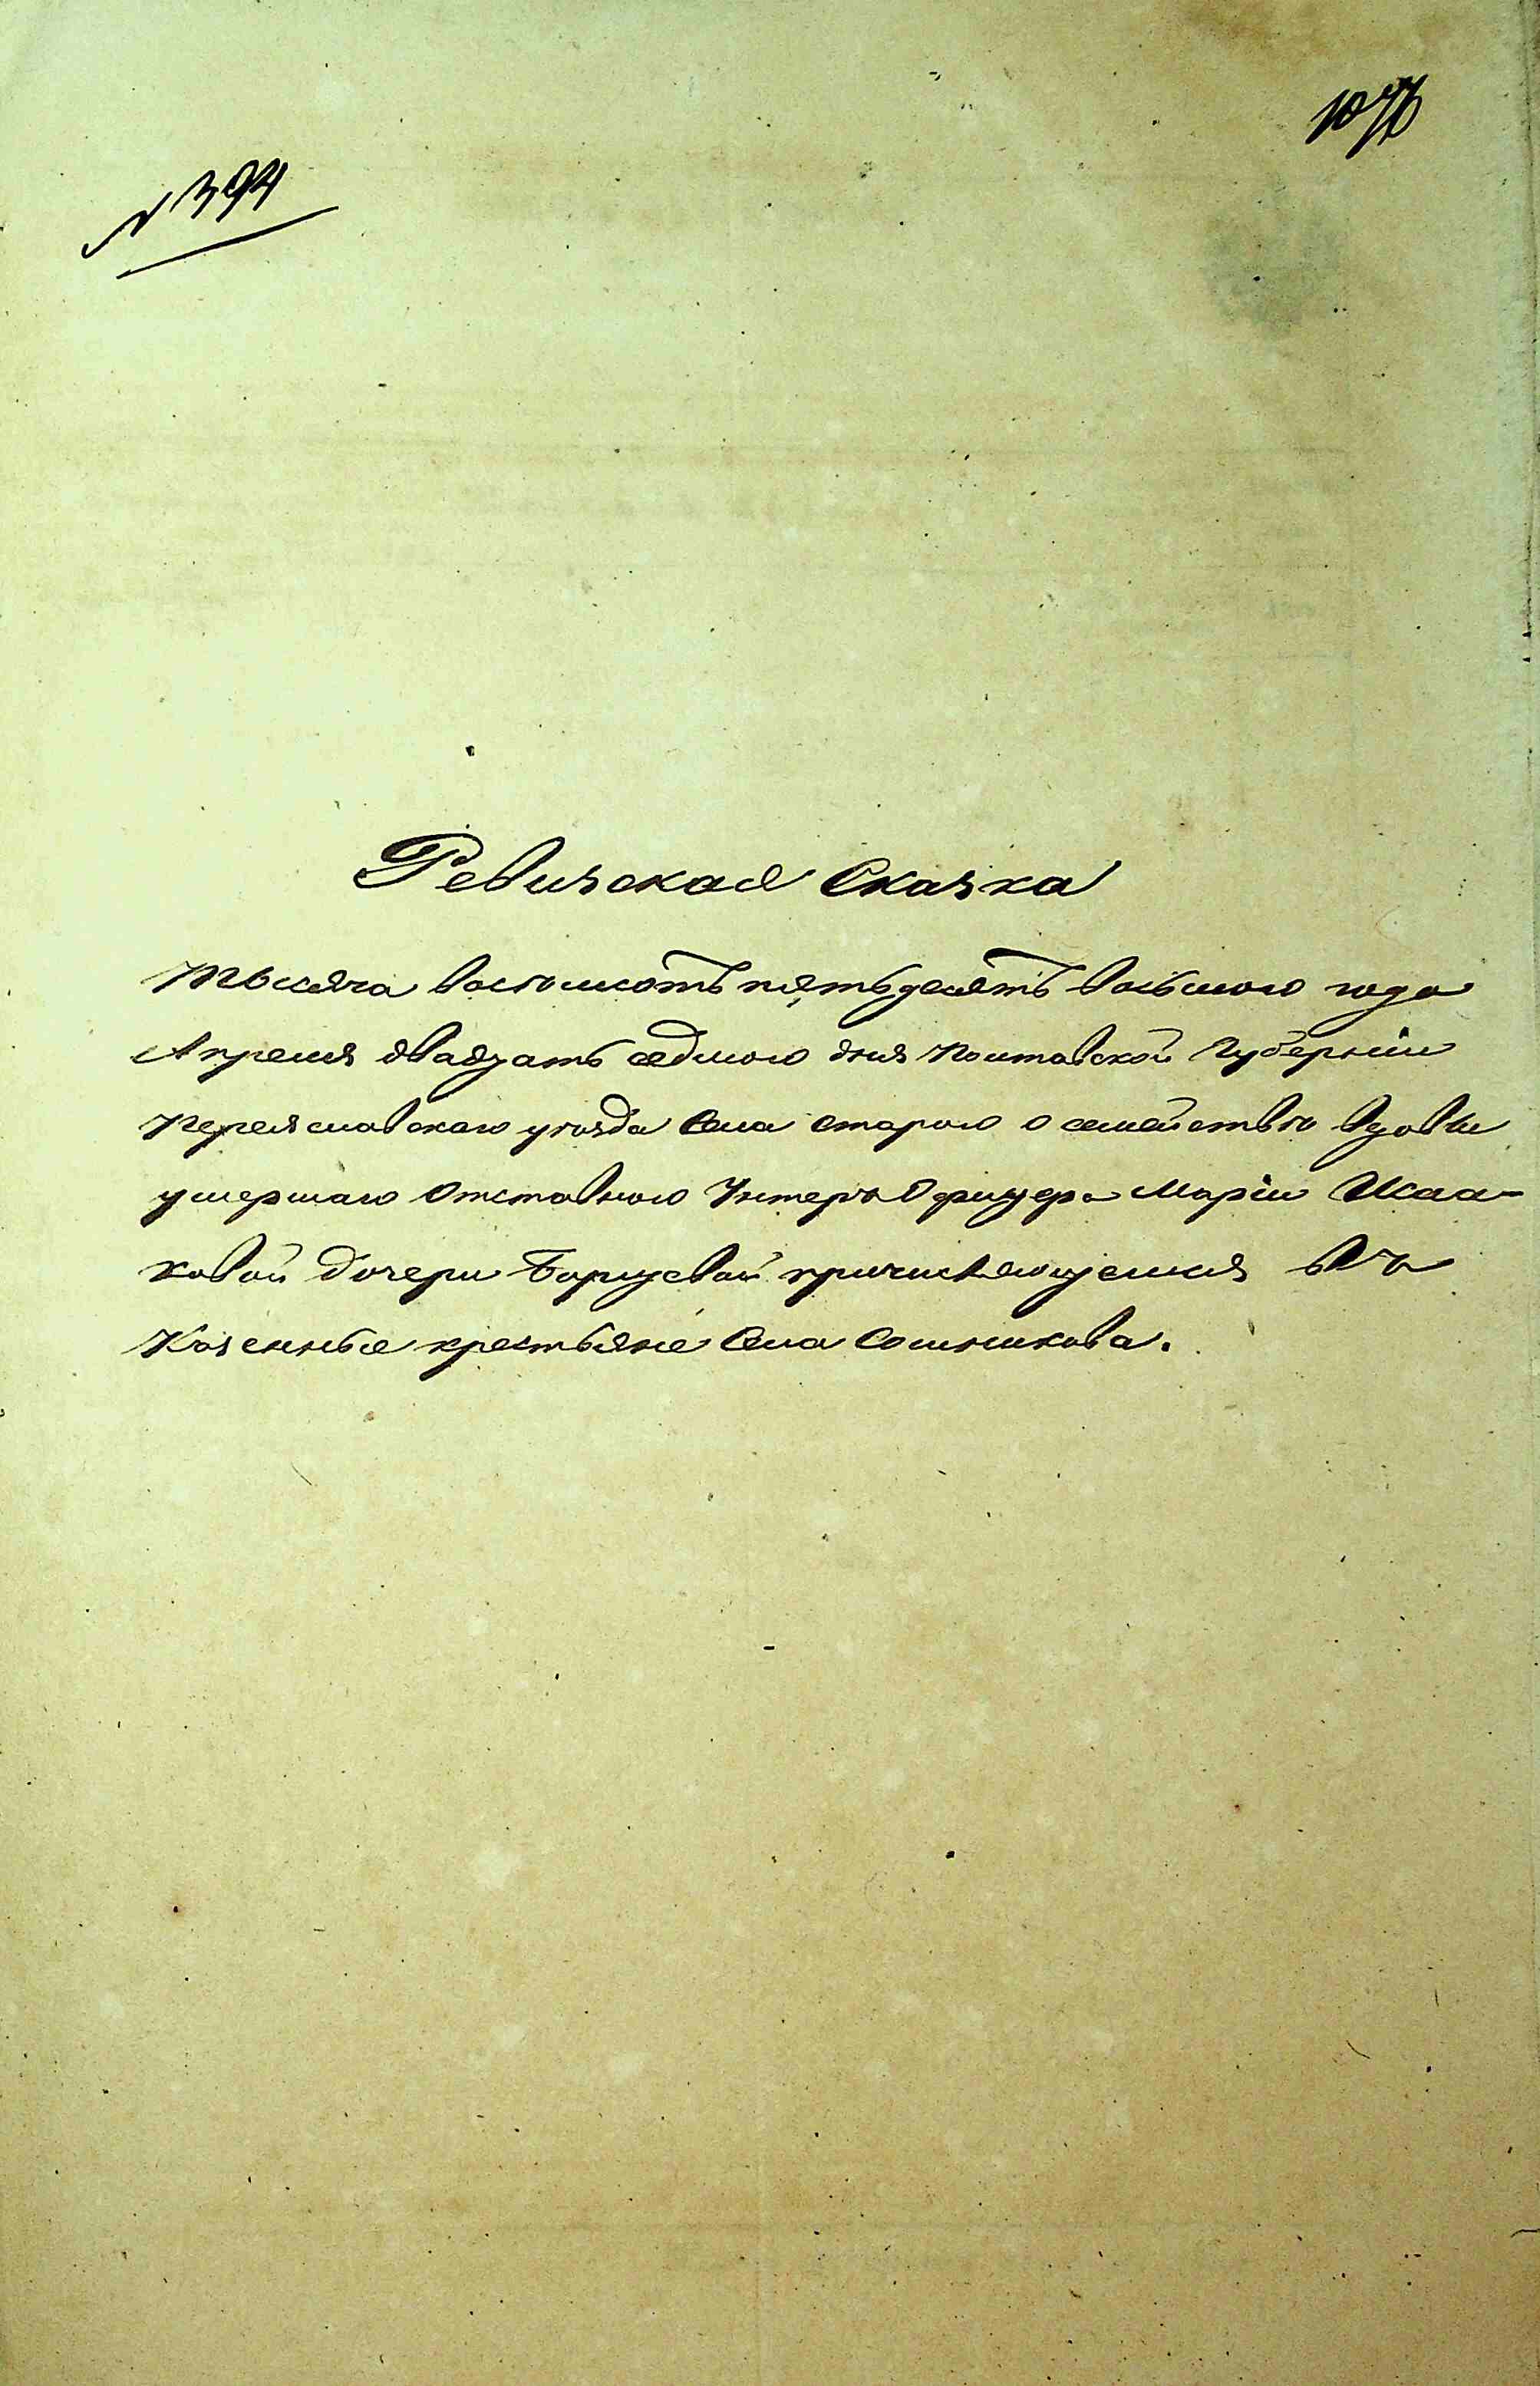 1076
№ 394
Ревизская Сказка
Тысяча восемьсотъ пятьдесятъ восьмого года
Апреля двадцать седмого дня Полтавской Губерніи
Переяславскаго уѣзда Села Старого о семействѣ вдовы
умершаго Отставного Унтеръ Офицера Маріи Исаа-
ковой дочери причисляющемся въ
Казенные крестьяне Села Сошникова.